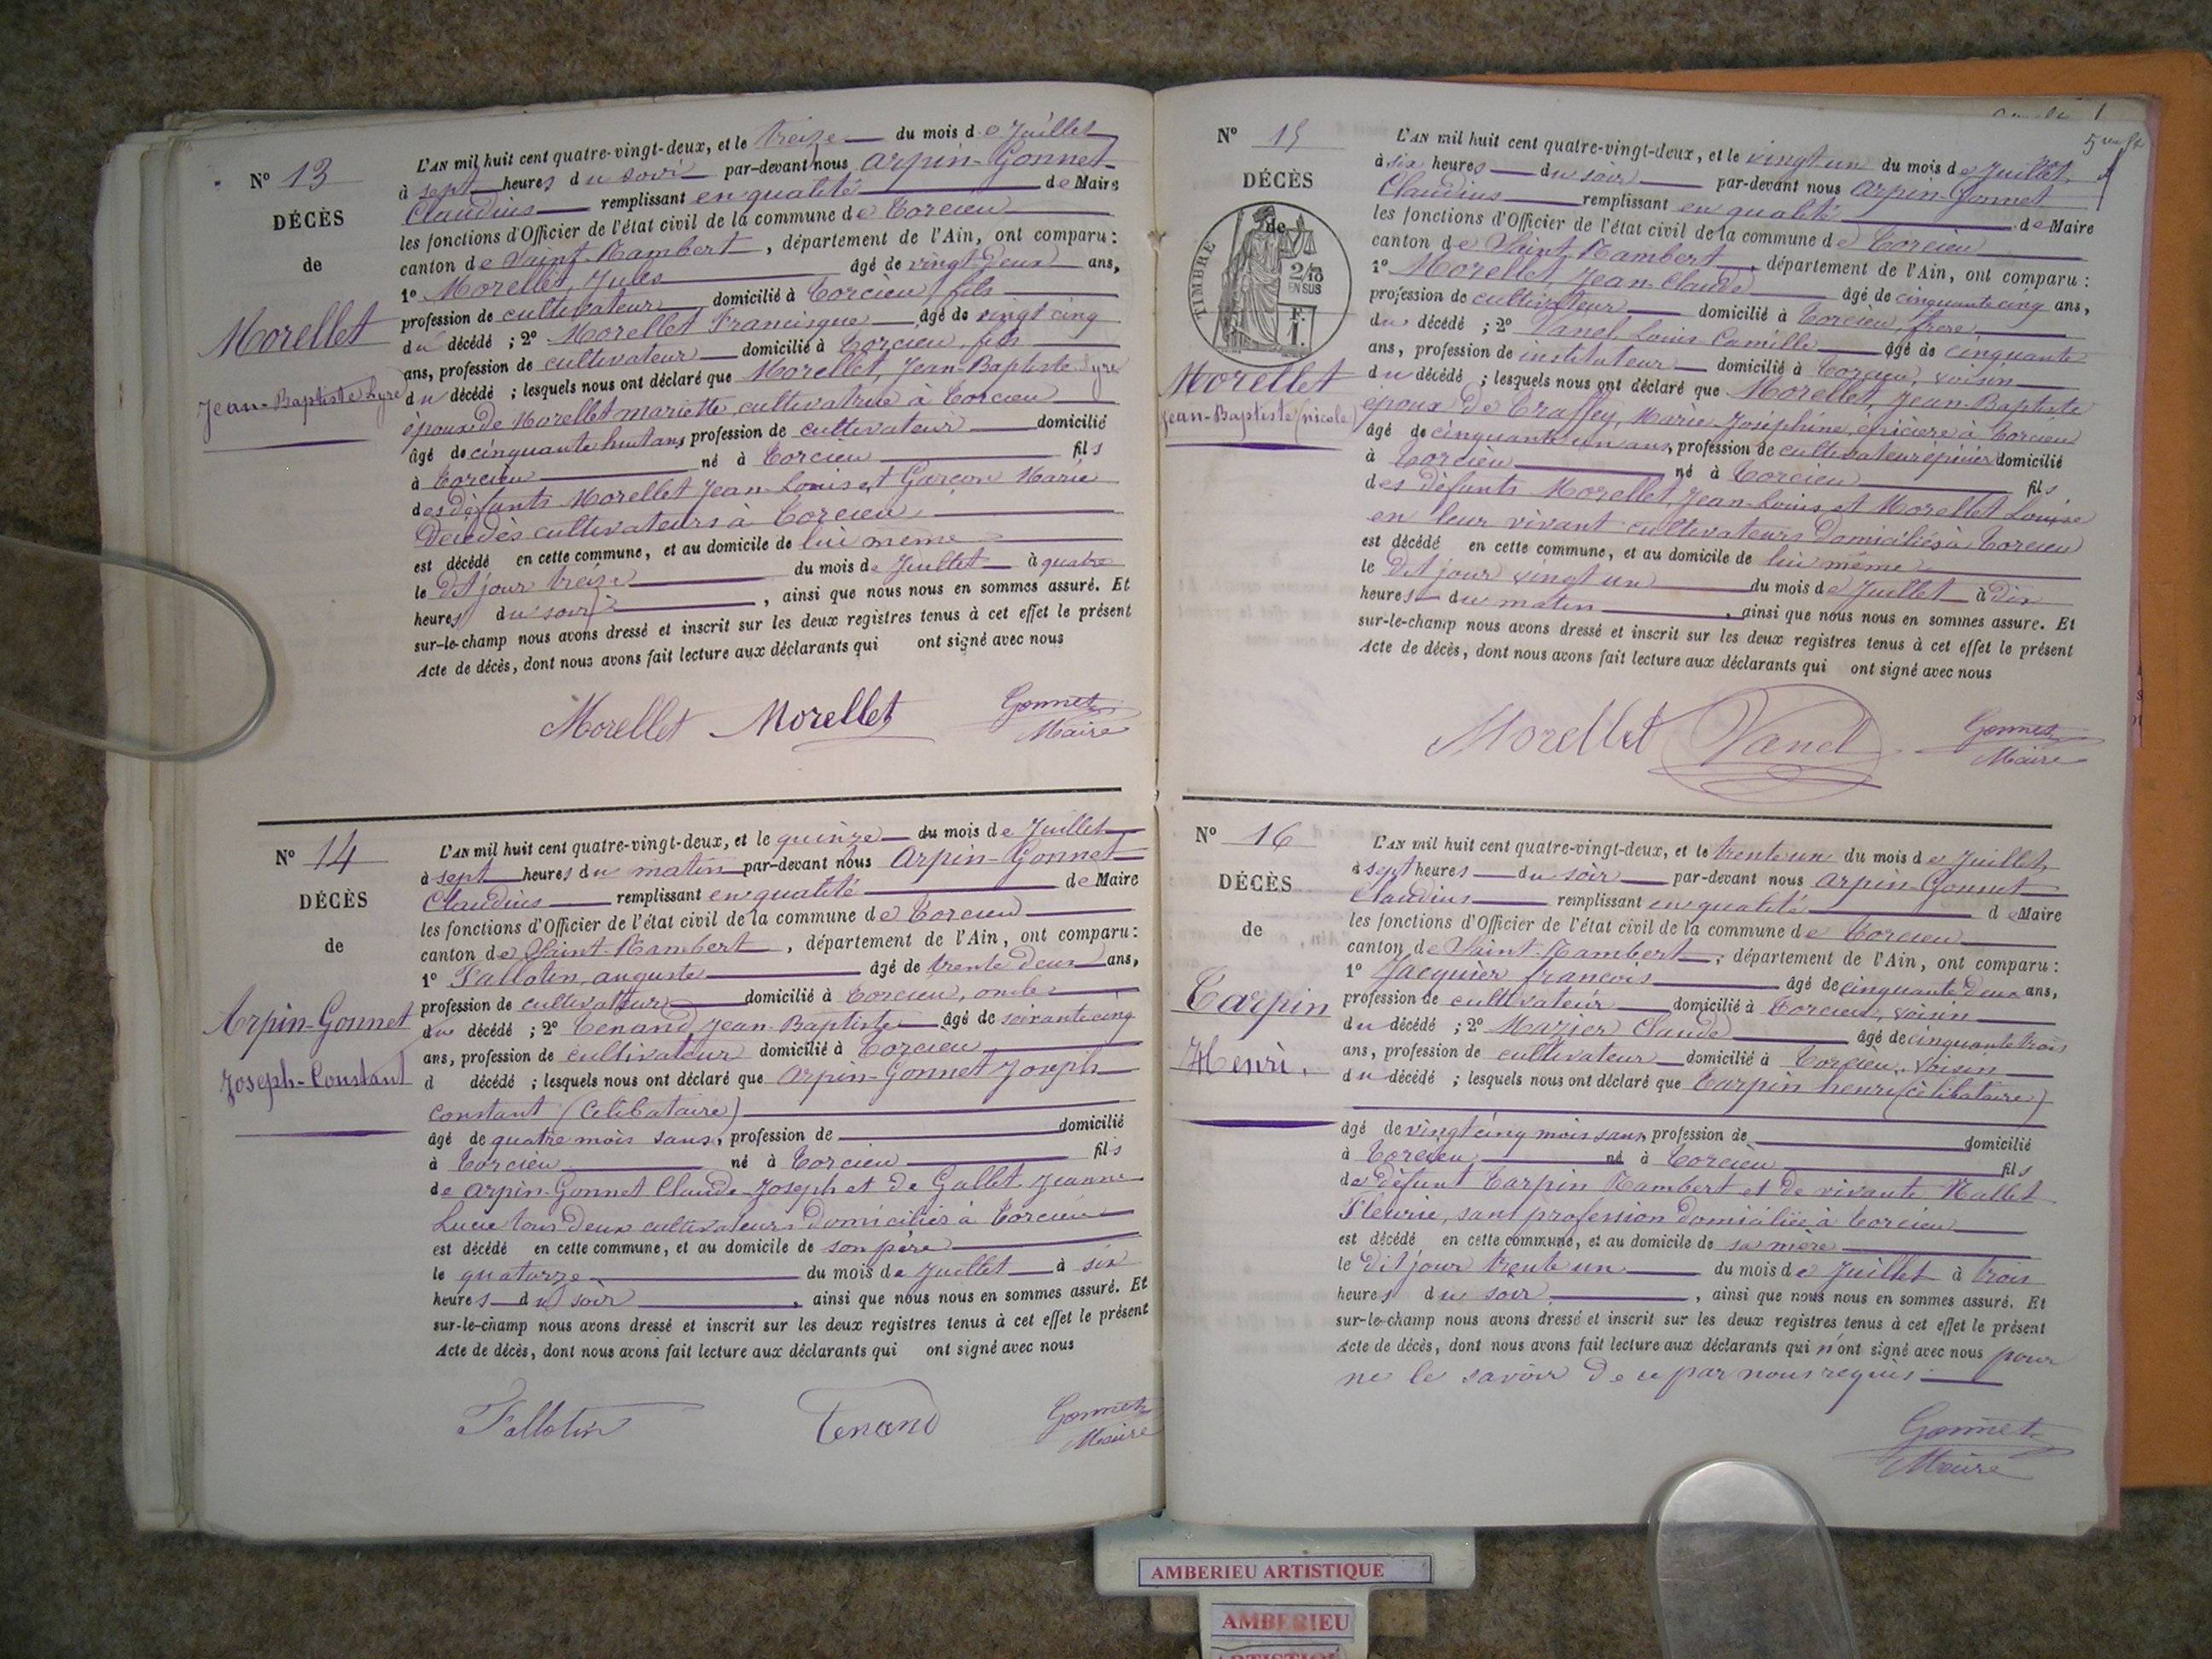 N° 13
DÉCÈS
de
Morellet
Jean-Baptiste Lyre
L'AN mil huit cent quatre-vingt-deux, et le treize du mois de Juillet
à sept heures du soir par-devant nous Arpin-Gonnet
Claudius remplissant en qualité de Maire
les fonctions d'Officier de l'état civil de la commune de Torcieu
canton de Saint-Rambert, département de l'Ain, ont comparu :
1° Morellet, Jules âgé de vingt deux ans,
profession de cultivateur domicilié à Torcieu, fils
du décédé ; 2° Morellet Francisque âgé de vingt cinq
ans, profession de cultivateur domicilié à Torcieu, fils
du décédé ; lesquels nous ont déclaré que Morellet, Jean-Baptiste Lyre
époux de Morellet mariette cultivatrice à Torcieu
âgé de cinquante huit ans profession de cultivateur domicilié
à Torcieu né à Torcieu fils
des défunts Morellet Jean-Louis et Garcon Marie
décédés cultivateurs à Torcieu
est décédé en cette commune, et au domicile de lui même
le dit jour treize du mois de Juillet à quatre
heures du soir, ainsi que nous nous en sommes assuré. Et
sur-le-champ nous avons dressé et inscrit sur les deux registres tenus à cet effet le présent
Acte de décès, dont nous avons fait lecture aux déclarants qui ont signé avec nous
Morellet Morellet Gonnet
Maire
N° 14
DÉCÈS
de
Arpin-Gonnet
Joseph-Constant
L'AN mil huit cent quatre-vingt-deux, et le quinze du mois de Juillet
à sept heures du matin par-devant nous Arpin-Gonnet
Claudius remplissant en qualité de Maire
les fonctions d'Officier de l'état civil de la commune de Torcieu
canton de Saint-Rambert, département de l'Ain, ont comparu :
1° Fallotin, auguste âgé de trente deux ans,
profession de cultivateur domicilié à Torcieu, oncle
du décédé ; 2° Tenand Jean-Baptiste âgé de soixante cinq
ans, profession de cultivateur domicilié à Torcieu
d décédé ; lesquels nous ont déclaré que Arpin-Gonnet Joseph
constant (célibataire)
âgé de quatre mois sans, profession de domicilié
à Torcieu né à Torcieu fils
de Arpin-Gonnet Claude-Joseph et de Gallet Jeanne
Lucie tous deux cultivateurs domiciliés à Torcieu
est décédé en cette commune, et au domicile de son père
le quatorze du mois de Juillet à six
heures du soir, ainsi que nous nous en sommes assuré. Et
sur-le-champ nous avons dressé et inscrit sur les deux registres tenus à cet effet le présent
Acte de décès, dont nous avons fait lecture aux déclarants qui ont signé avec nous
Fallotin Tenand Gonnet
Maire
N° 15
DÉCÈS
de
TIMBRE
2/10
EN SUS
F.
1.
Morellet
Jean-Baptiste (nicole)
L'AN mil huit cent quatre-vingt-deux, et le vingt un du mois de Juillet
à six heures du soir par-devant nous Arpin-Gonnet
Claudius remplissant en qualité de Maire
les fonctions d'Officier de l'état civil de la commune de Torcieu
canton de Saint Rambert, département de l'Ain, ont comparu :
1° Morellet, Jean-Claude âgé de cinquante cinq ans,
profession de cultivateur domicilié à Torcieu, frère
du décédé ; 2° Vanel, Louis Camille âgé de cinquante
ans, profession de instituteur domicilié à Torcieu, voisin
du décédé ; lesquels nous ont déclaré que Morellet Jean-Baptiste
époux de Traffey, Marie-Joséphine, épicière à Torcieu
âgé de cinquante un ans, profession de cultivateur épicier domicilié
à Torcieu né à Torcieu fils
des défunts Morellet, Jean-Louis et Morellet Louise
en leur vivant cultivateurs domiciliés à Torcieu
est décédé en cette commune, et au domicile de lui même
le dit jour vingt un du mois de Juillet à dix
heures du matin, ainsi que nous nous en sommes assuré. Et
sur-le-champ nous avons dressé et inscrit sur les deux registres tenus à cet effet le présent
Acte de décès, dont nous avons fait lecture aux déclarants qui ont signé avec nous
Morellet Vanel Gonnet
Maire
N° 16
DÉCÈS
de
Tarpin
Henri.
L'AN mil huit cent quatre-vingt-deux, et le trente un du mois de Juillet
à sept heures du soir par-devant nous Arpin-Gonnet
Claudius remplissant en qualité de Maire
les fonctions d'Officier de l'état civil de la commune de Torcieu
canton de Saint-Rambert, département de l'Ain, ont comparu :
1° Jacquier francois âgé de cinquante deux ans,
profession de cultivateur domicilié à Torcieu, voisin
du décédé ; 2° Mazier Claude âgé de cinquante trois
ans, profession de cultivateur domicilié à Torcieu, voisin
du décédé ; lesquels nous ont déclaré que Tarpin henri (célibataire)
âgé de vingt cinq mois sans, profession de domicilié
à Torcieu né à Torcieu fils
de défunt Tarpin Rambert et de vivante Mallet
Fleurie, sans profession domiciliée à Torcieu
est décédé en cette commune, et au domicile de sa mère
le dit jour trente un du mois de Juillet à trois
heures du soir, ainsi que nous nous en sommes assuré. Et
sur-le-champ nous avons dressé et inscrit sur les deux registres tenus à cet effet le présent
Acte de décès, dont nous avons fait lecture aux déclarants qui n'ont signé avec nous pour
ne le savoir de ce par nous requis.
Gonnet
Maire
AMBERIEU ARTISTIQUE
AMBERIEU
ARTISTIQUE